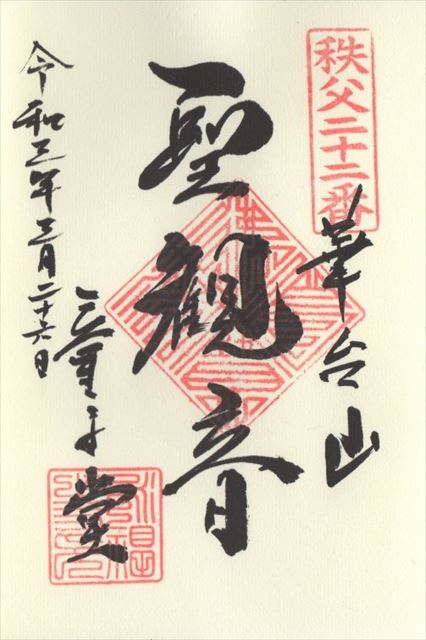 秩父二十二番
華台山
聖観音
童子堂
令和三年三月二十六日